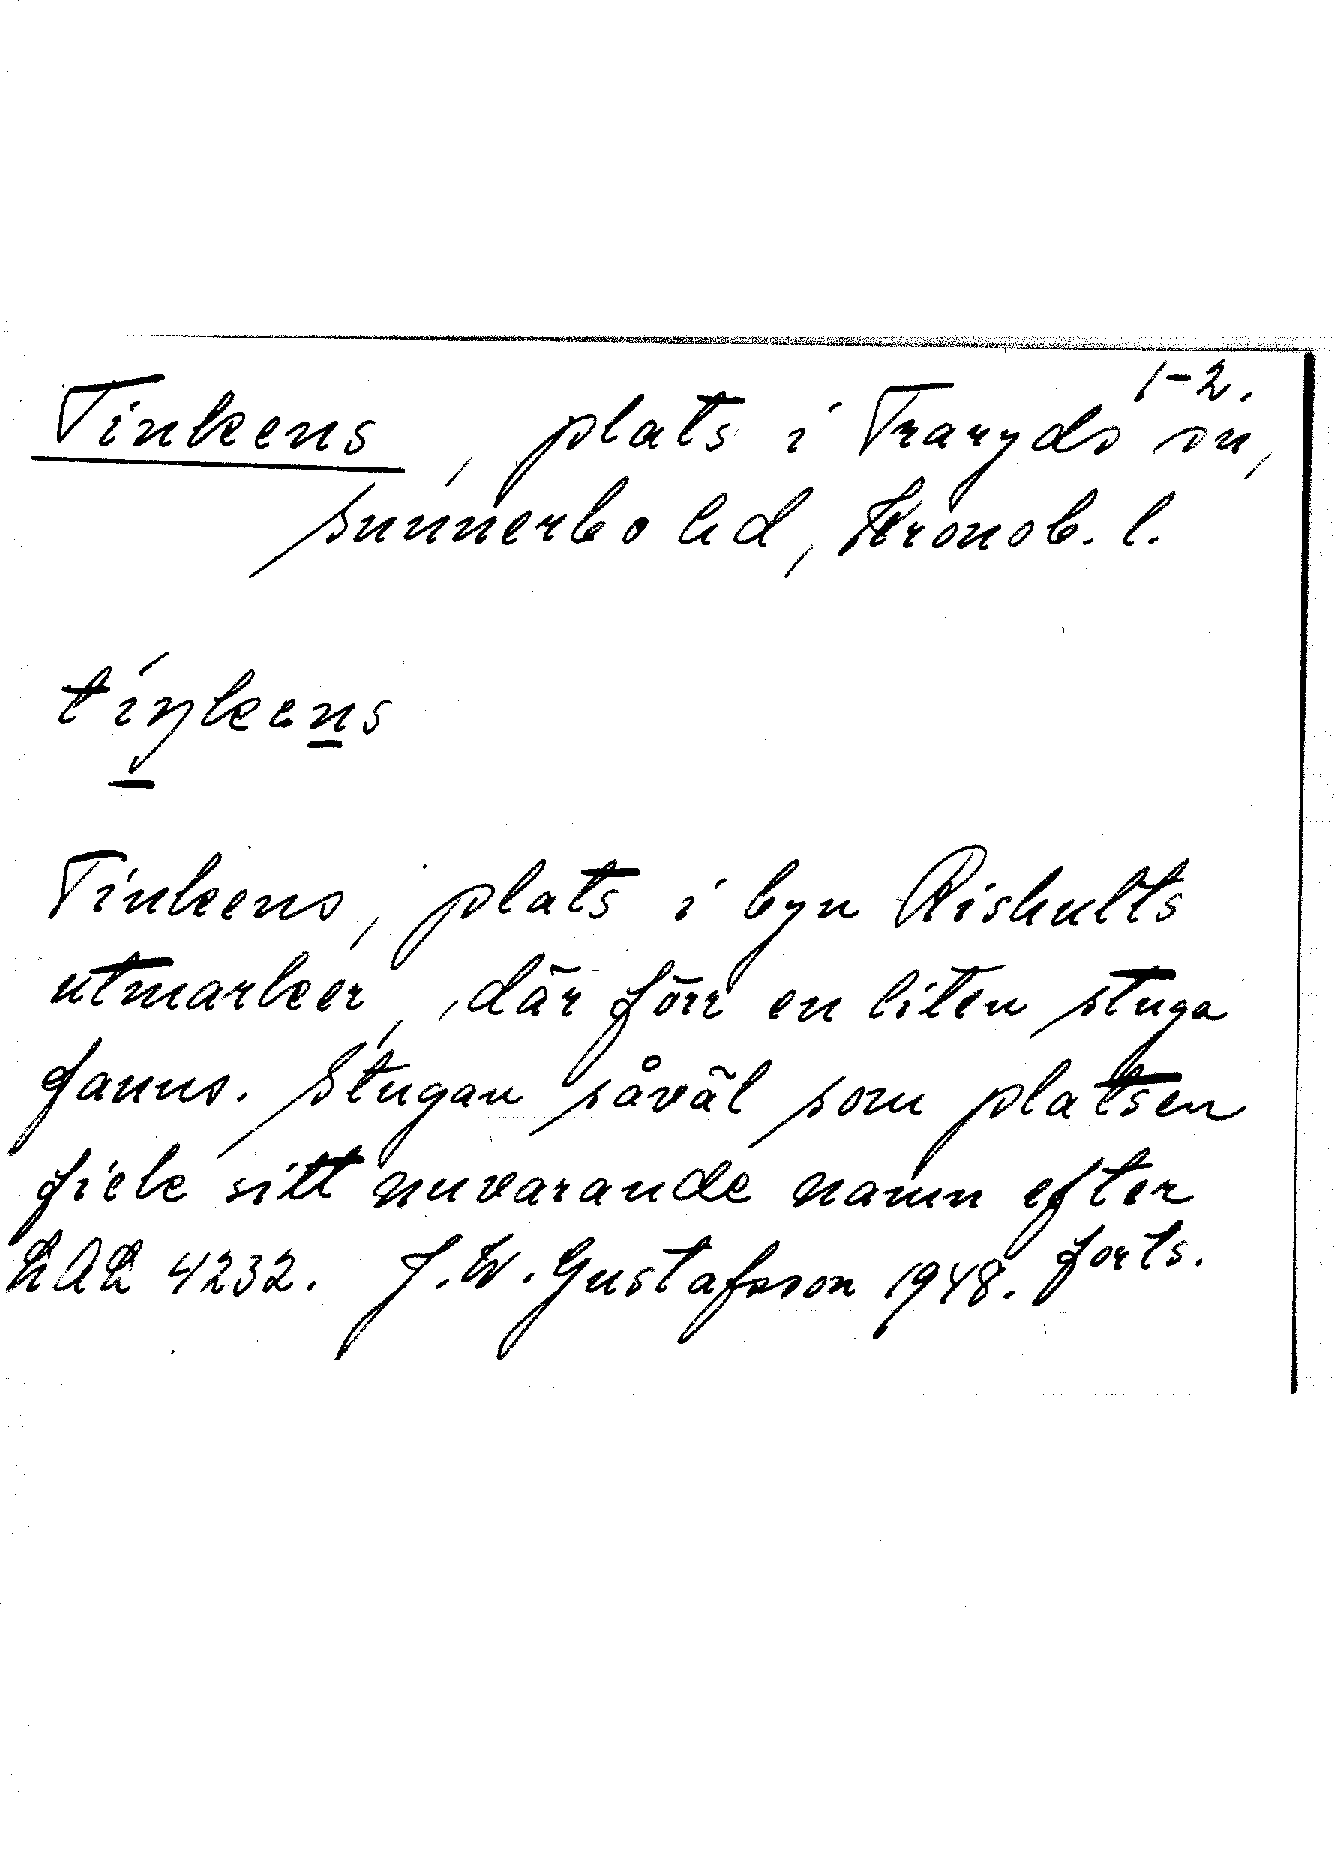 1-2.
Tinkens, plats i Traryds sn,
Sunnerbo hd, Kronob. l.
tiŋkens
Tinkens, plats i byn Rishults
utmarker, där förr en liten stuga
fanns. Stugan såväl som platsen
fick sitt nuvarande namn efter
forts.
LAL 4232. J.W. Gustafsson 1948.